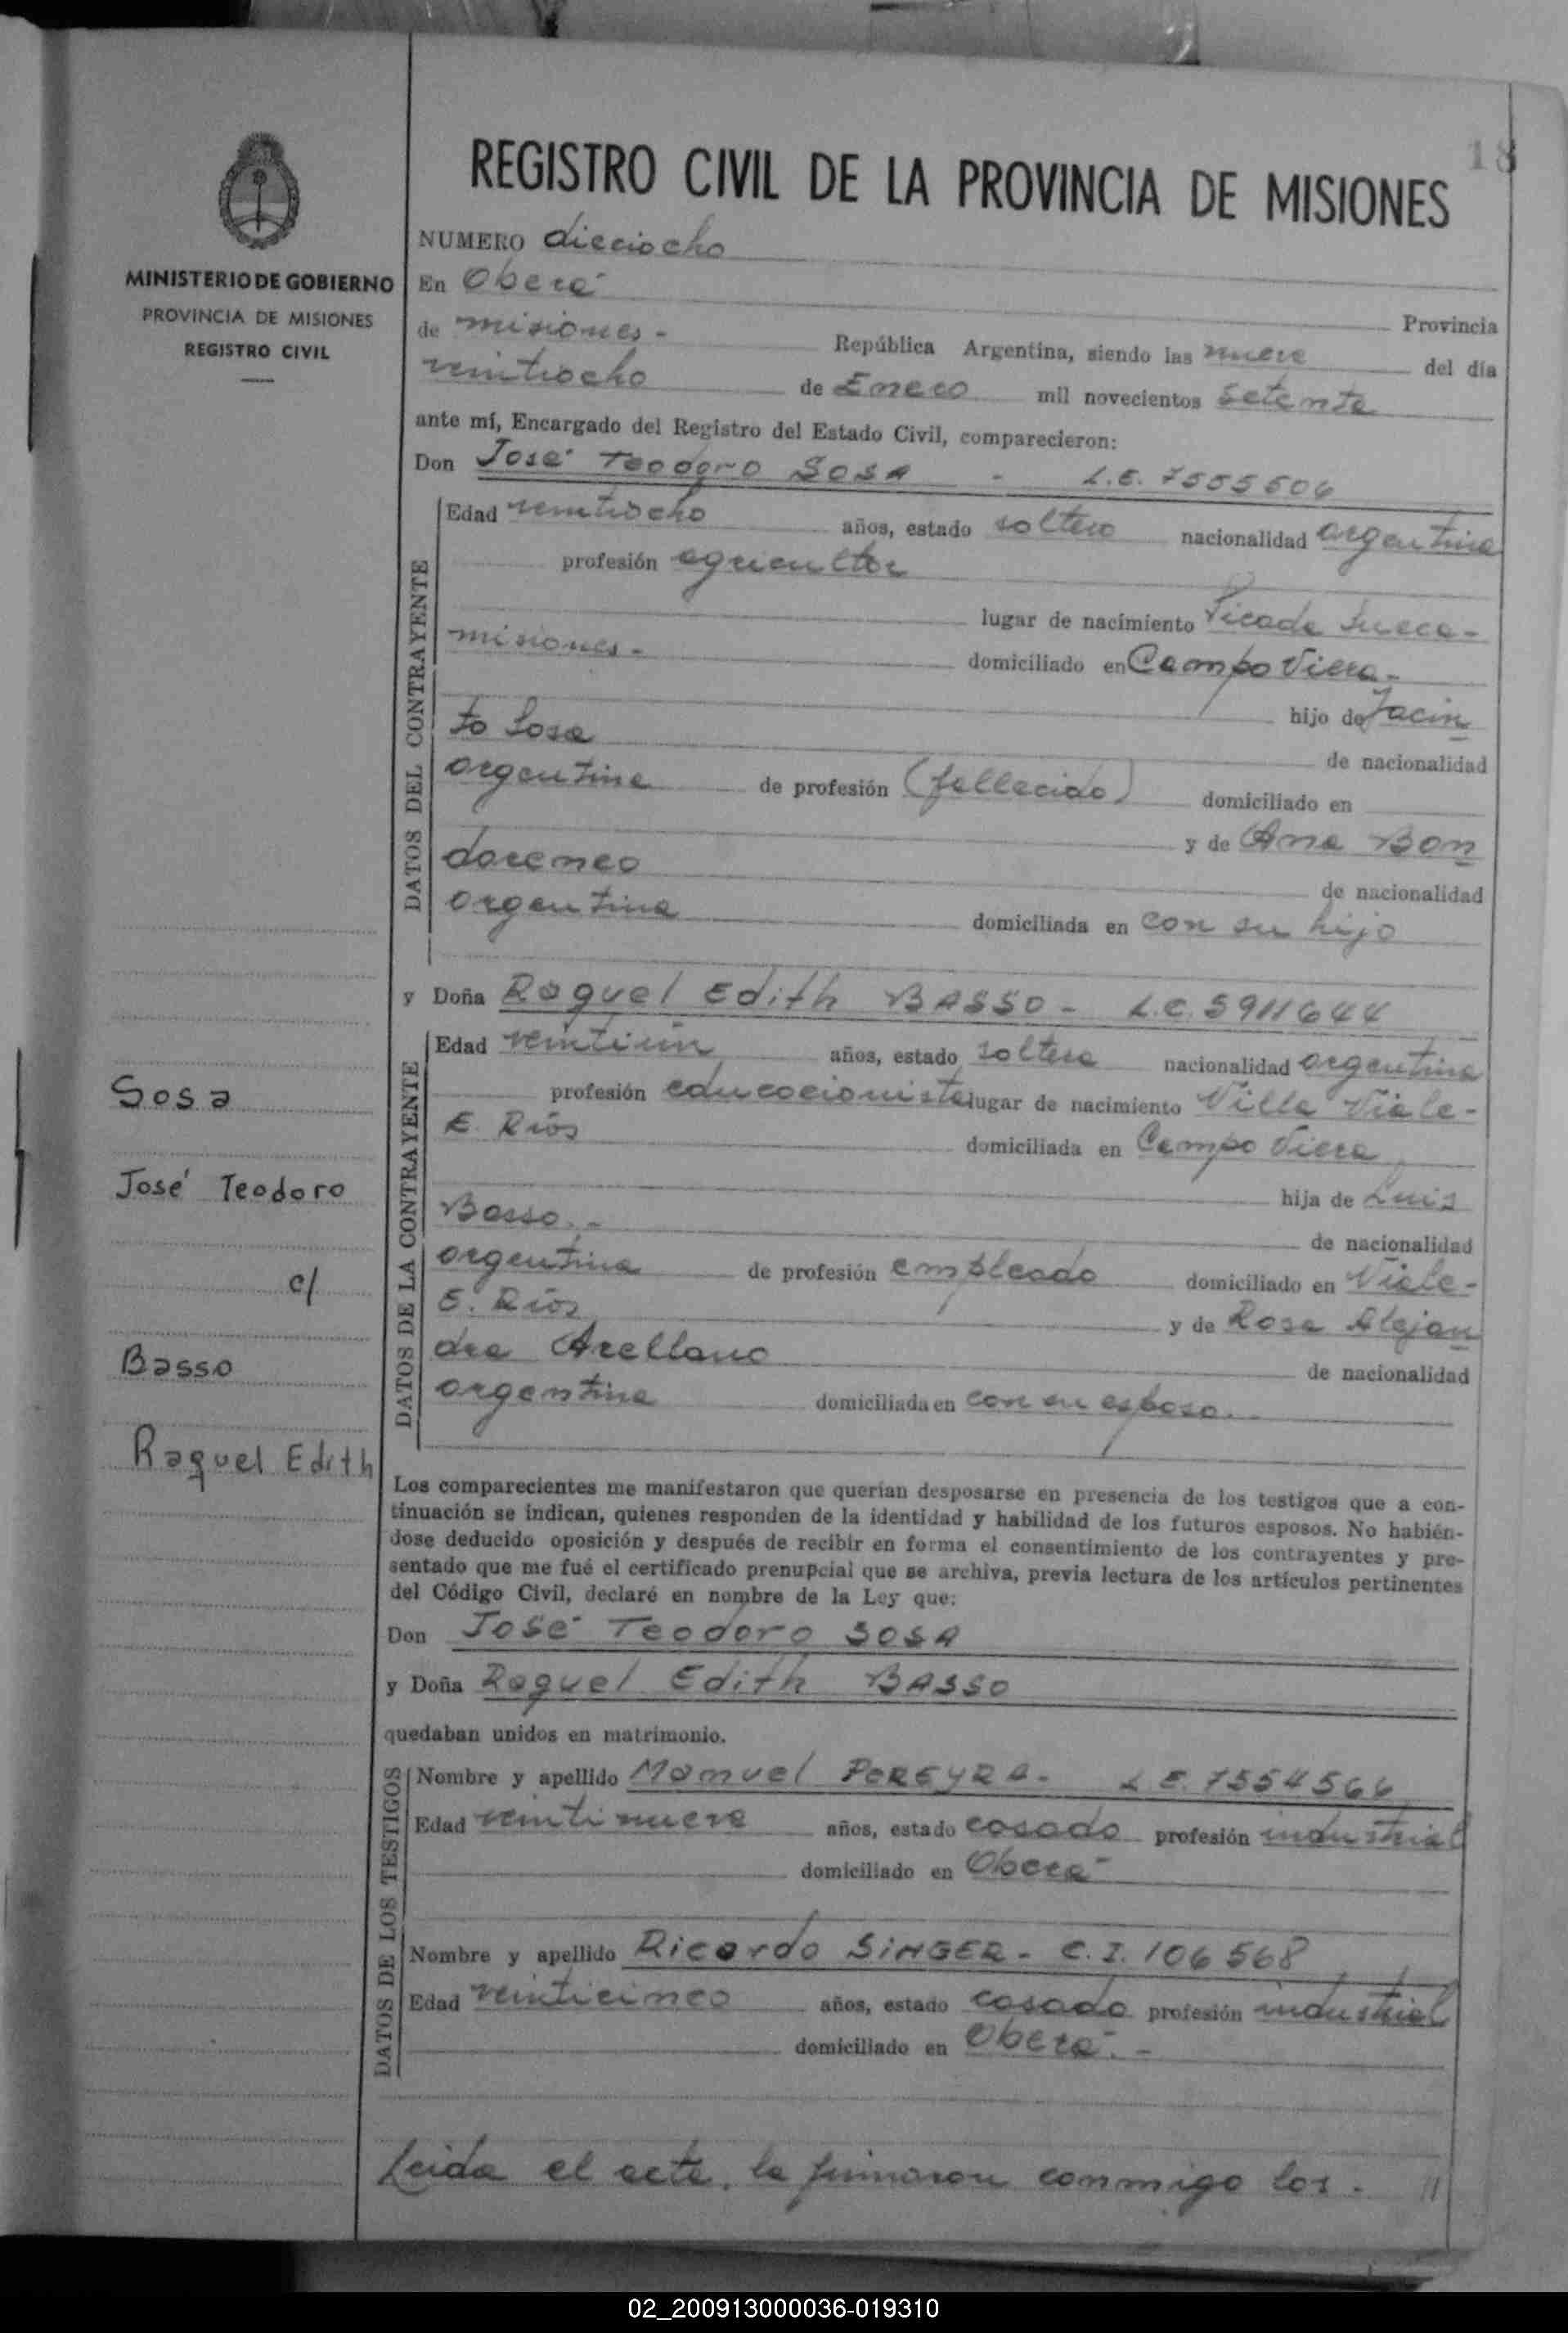 18
REGISTRO CIVIL DE LA PROVINCIA DE MISIONES
MINISTERIO DE GOBIERNO
PROVINCIA DE MISIONES
REGISTRO CIVIL
Sosa
José Teodoro
c/
Basso
Raquel Edith
NUMERO dieciocho
En Oberá Provincia
de misiones - República Argentina, siendo las nueve del día
veintiocho de Enero mil novecientos setenta
ante mí, Encargado del Registro del Estado Civil, comparecieron:
Don José Teodoro SOSA - L.E. 7555506
DATOS DEL CONTRAYENTE
Edad veintiocho años, estado soltero nacionalidad argentina
profesión agricultor
lugar de nacimiento Picada Sueca -
misiones - domiciliado en Campo Viera -
hijo de Jacin
to Sosa de nacionalidad
argentina de profesión (fallecido) domiciliado en
y de Ana Bon
daremco de nacionalidad
argentina domiciliada en con su hijo
y Doña Raquel Edith BASSO - L.C. 5911644
DATOS DE LA CONTRAYENTE
Edad veintiún años, estado soltera nacionalidad argentina
profesión educacionista lugar de nacimiento Villa Viale -
E. Ríos domiciliada en Campo Viera
hija de Luis
Basso. - de nacionalidad
argentina de profesión empleado domiciliado en Viale -
E. Ríos y de Rosa Alejan
dra Arellano de nacionalidad
argentina domiciliada en con su esposo. -
Los comparecientes me manifestaron que querían desposarse en presencia de los testigos que a con-
tinuación se indican, quienes responden de la identidad y habilidad de los futuros esposos. No habién-
dose deducido oposición y después de recibir en forma el consentimiento de los contrayentes y pre-
sentado que me fué el certificado prenupcial que se archiva, previa lectura de los artículos pertinentes
del Código Civil, declaré en nombre de la Ley que:
Don José Teodoro SOSA
y Doña Raquel Edith BASSO
quedaban unidos en matrimonio.
DATOS DE LOS TESTIGOS
Nombre y apellido Manuel PEREYRA - L.E. 7554566
Edad veintinueve años, estado casado profesión industrial
domiciliado en Oberá
Nombre y apellido Ricardo SINGER - C.I. 106568
Edad veinticinco años, estado casado profesión industrial
domiciliado en Oberá. -
Leida el acta, la firmaron conmigo los - //
02_200913000036-019310